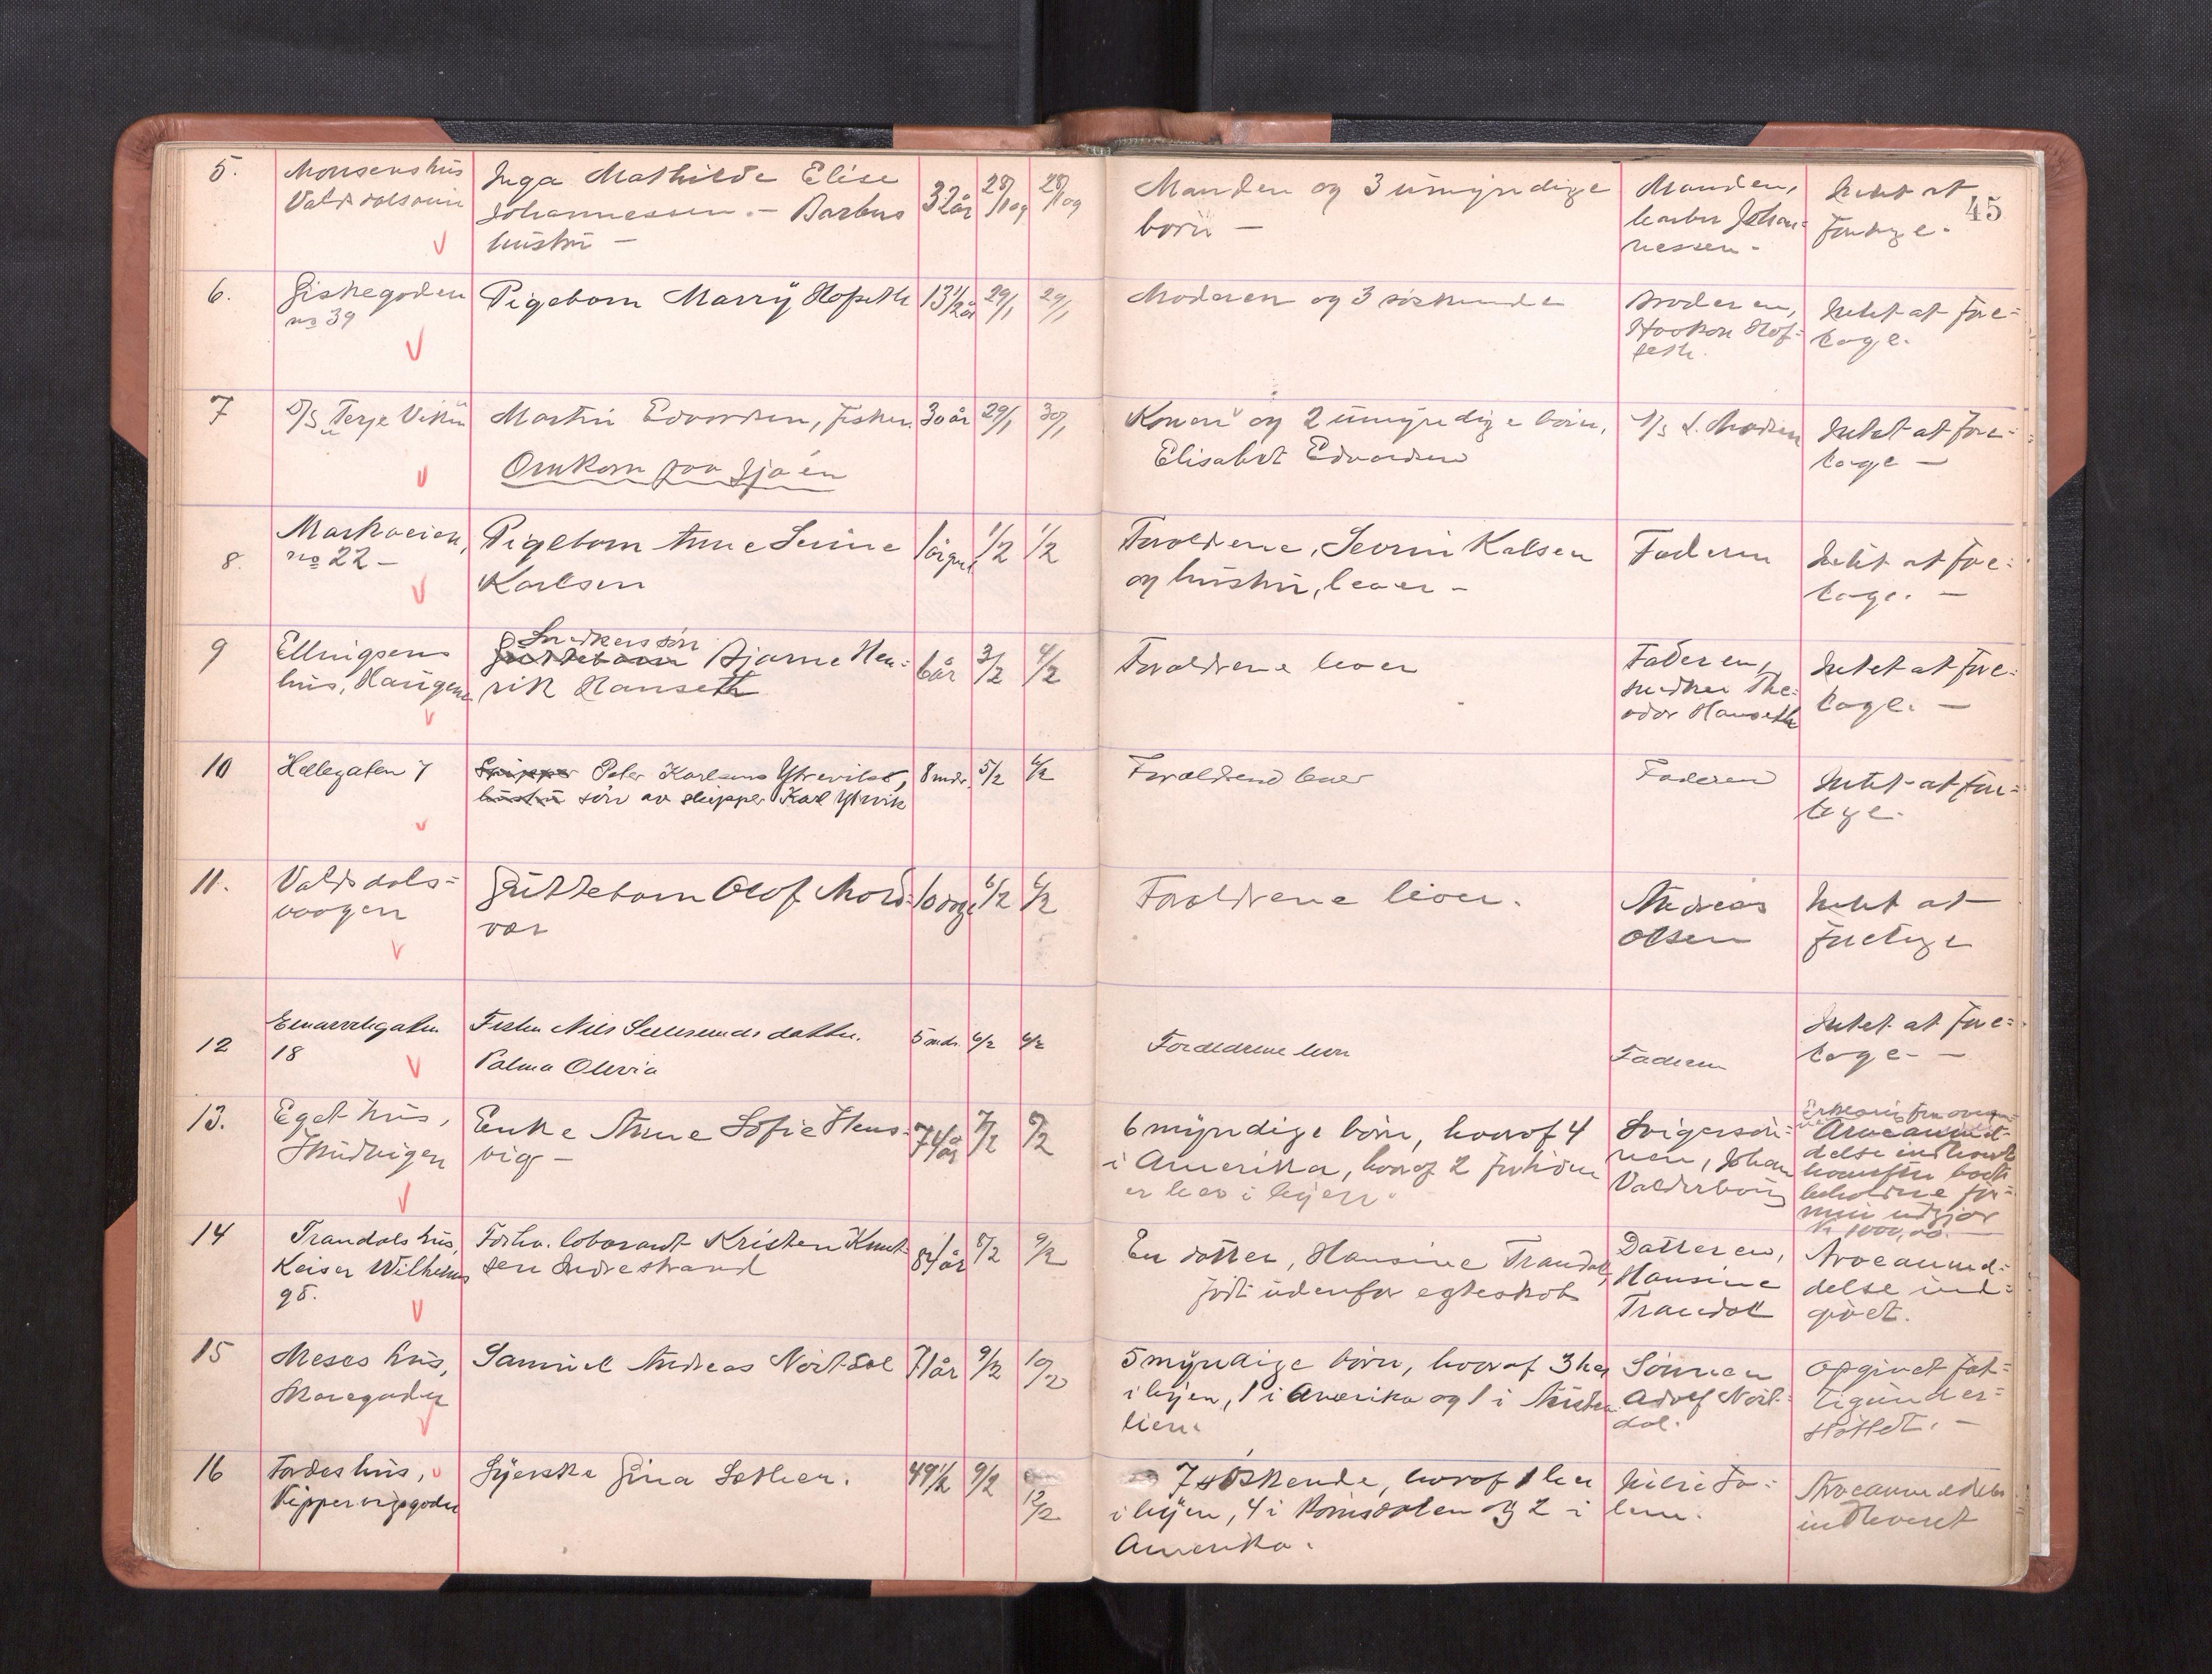 45
5.
Monsens hus
Inga Mathilde Elise
Johannessen. - Barber
hustru -
32 år
28/1 09
28/1 09
Manden og 3 umyndige
børn -
Manden,
barber Johan-
nessen -
Intet at
foretage.
6.
Giskegaden
no 39
Pigebarn Marry Hofseth
13 1/2 år
29/1
29/1
Moderen og 3 søskende
Broderen,
Haakon Hof-
seth.
Intet at fore=
tage.
7
D/S Terje Viken
Martin Edvardsen, fisker.
Omkom paa sjøen
30 år
29/1
30/1
Konen og 2 umyndige børn,
Elisabet Edvardsen
Intet at fore-
tage -
8.
no 22 -
Pigebarn Anne Serine
Karlsen
1/2
1/2
Forældrene, Severin Kalsen
og hustru, lever -
Faderen
Intet at fore=
tage. -
9
Ellingsens
hus, Haugene
Snedkerssøn
Guttebarn Bjarne Hen=
rik Hanseth
6 år
3/2
4/2
Forældrene lever
Faderen,
snedker The=
odor Hanseth
Intet at fore=
tage. -
10
Hellegaten 7
Skipper Peter Karlsens Ytrevik,
hustru søn av skipper Karl Ytrevik
8 mdr.
5/2
6/2
Forældrene lever
Faderen
Intet at fore=
tage.
11.
Valdsdals=
vaagen
Guttebarn Olof Mord-
vær
10 dage
6/2
6/2
Forældrene lever.
Andreas
Olsen
Intet at
foretage
12
18
Fisker Nils datter.
Palma Olevia
5 mdr.
6/2
6/2
Forældrene lever
Faderen
Intet at fore=
tage. -
13.
Eget hus,
Enke Anne Sofie Stens=
vig -
74 år
7/2
8/2
6 myndige børn, hvoraf 4
i Amerika, hvoraf 2
er her i byen.
Svigersøn=
nen, Johan
Arveanmel-
delse indleveret
boets
beholdne for=
mue udgjør
Kr. 1000,00. -
14
Trandals hus,
Keiser Wilhelms
98.
Forhv. laborant Kristen Knut-
sen Indrestrand
84 år
8/2
9/2
En datter, Hansine Trandal,
født udenfor egteskab
Datteren,
Hansine
Trandal
Arveanmel=
delse ind=
givet.
15
hus,
Samuel Andreas Nordal
71 år
9/2
10/2
5 myndige børn, hvoraf 3 her
i byen, 1 i Amerika og 1 i Kristia-
Sønnen
Adolf Nord-
dal.
Opgivet fat=
tigunder=
støttet. -
16
hus,
Nippervigsgaden
Syerske Gina Sether.
49 1/2
9/2
12/2
7 søskende, hvoraf 1 her
i byen, 4 i Romsdalen og 2 i
Amerika.
Arveanmeldelse
indleveret